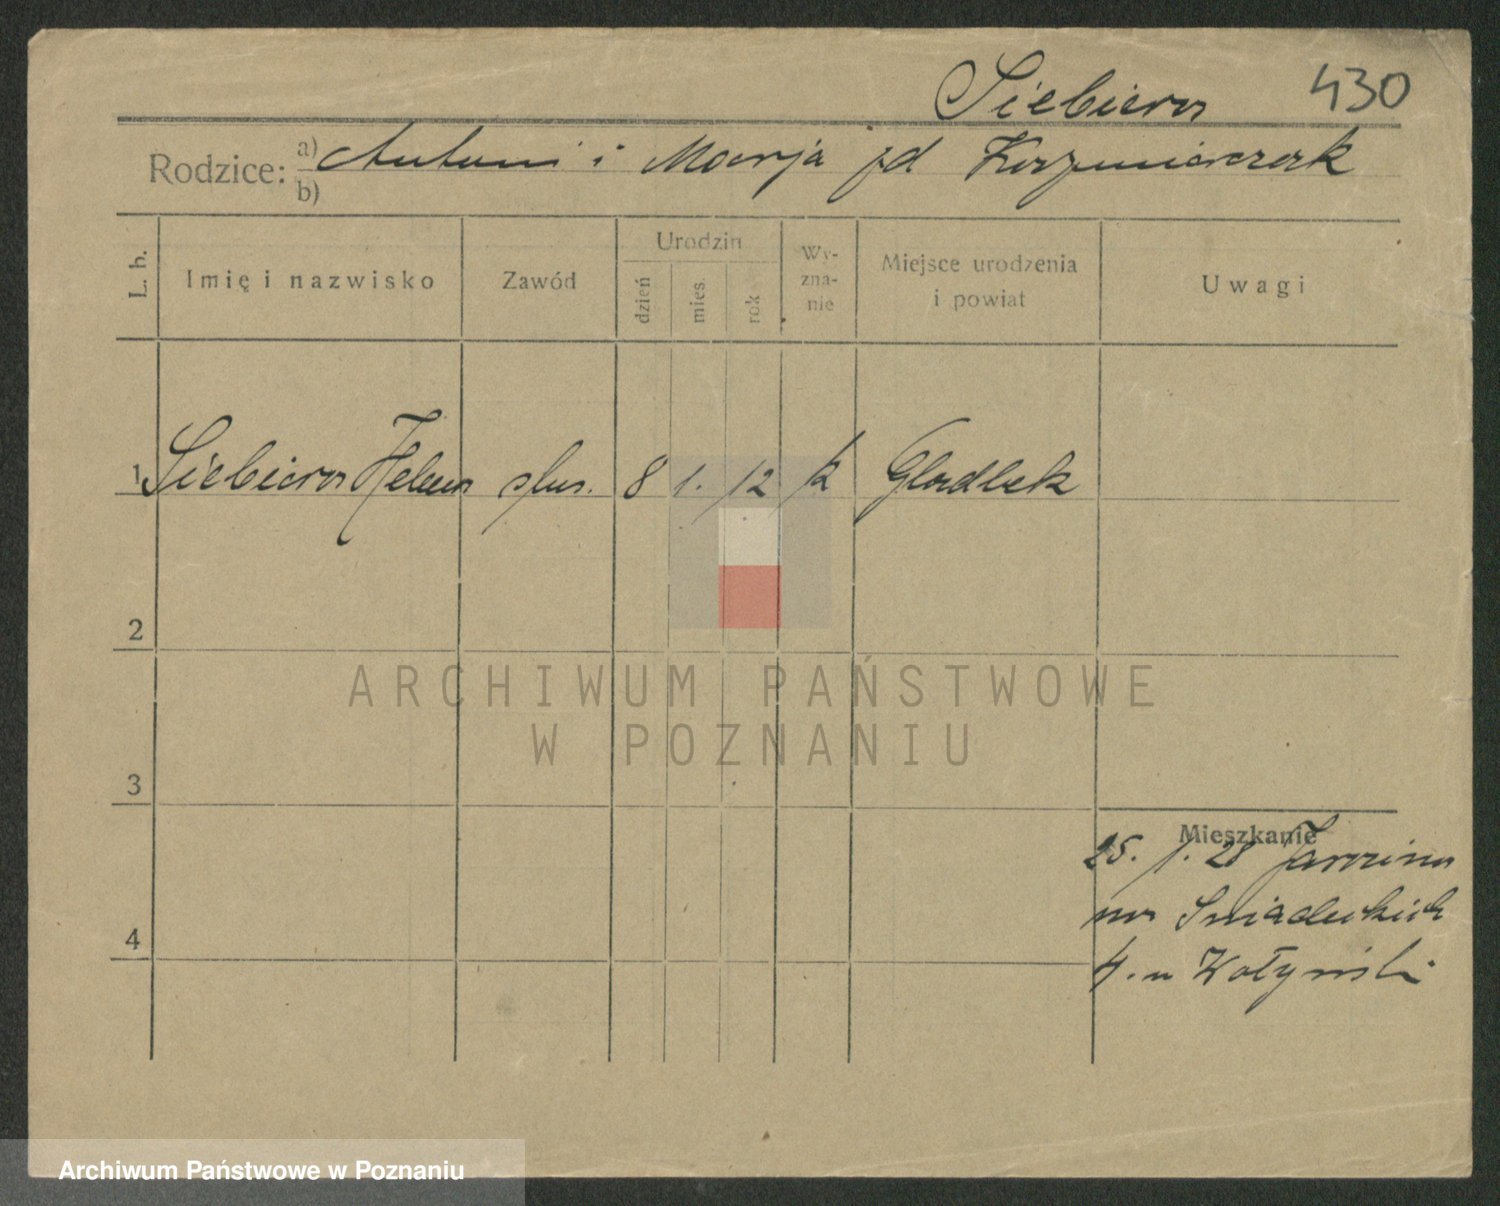 Siebiera 430
Rodzice: a) Antoni i Marja zd Kaźmierczak
b)
L. b. Imię i nazwisko Zawód Urodzin Wyznanie Miejsce urodzenia i powiat Uwagi
dzień mies. rok
1 Siebiera Helena służ. 8 1. 12 k Gladbek
2
ARCHIWUM PAŃSTWOWE
W POZNANIU
3
Mieszkanie
25. 1. 28 Jarocina
na Śniadeckich
4. u Wołyński
4
Archiwum Państwowe w Poznaniu